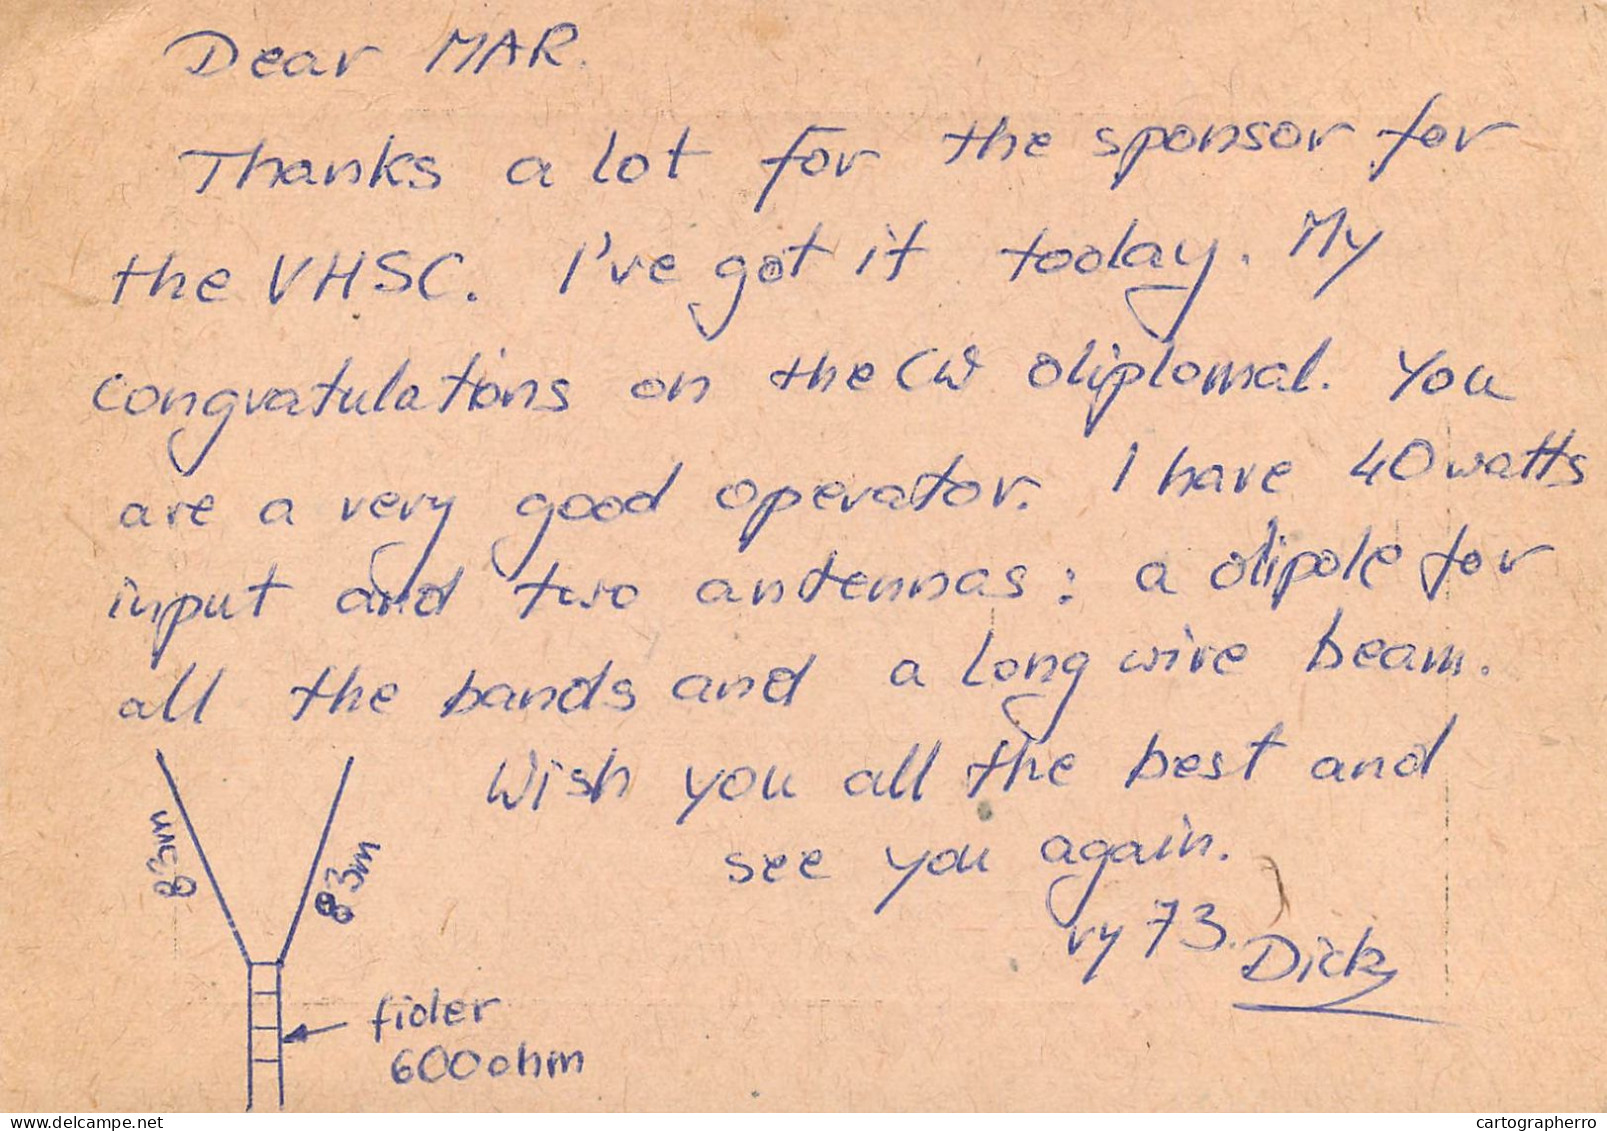 Dear MAR.
Thanks a lot for the sponsor for
the VHSC. I've got it today. My
congratulations on the CW diplomal. You
are a very good operator. I have 40 watts
input and two antennas: a dipole for
all the bands and a long wire beam.
Wish you all the best and
see you again.
vy 73.
Dick
83m
83m
fider
600 ohm
www.delcampe.net
cartographerro